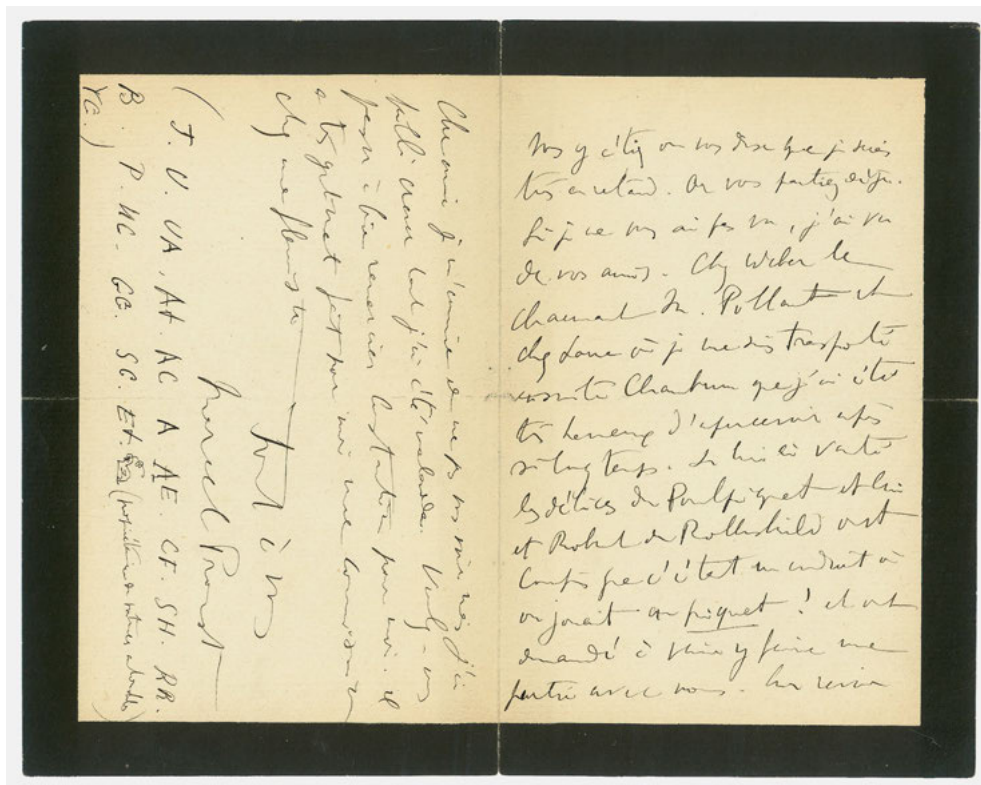 vous y étiez on vous dise que je suis
très en retard. Or vous partiez déjà.
Si je ne vous ai pas vu, j'ai vu
de vos amis. Chez Weber le
charmant M.
chez Larue où je me suis transporté
ensuite Chambrun que j'ai été
très heureux d'apercevoir après
si longtemps. Je lui ai vanté
les délices du Poulpiquet et lui
et Robert de Rothschild ont
compris que c'était un endroit où
on jouait au piquet ! et ont
demandé à venir y faire une
partie avec nous. Au revoir
Cher ami je m'ennuie de ne pas vous voir mais j'ai
failli crever tant j'ai été malade. Voulez-vous
à bien remercier Constantin pour moi. il
a très gentiment fait pour moi une commission
chez une fleuriste
Tout à vous
Marcel Proust
(T. V. VA. At. AC A AE. CF. SH. RR.
B. P. HC. GC. SC. Et. (propriétaire de
YC.)